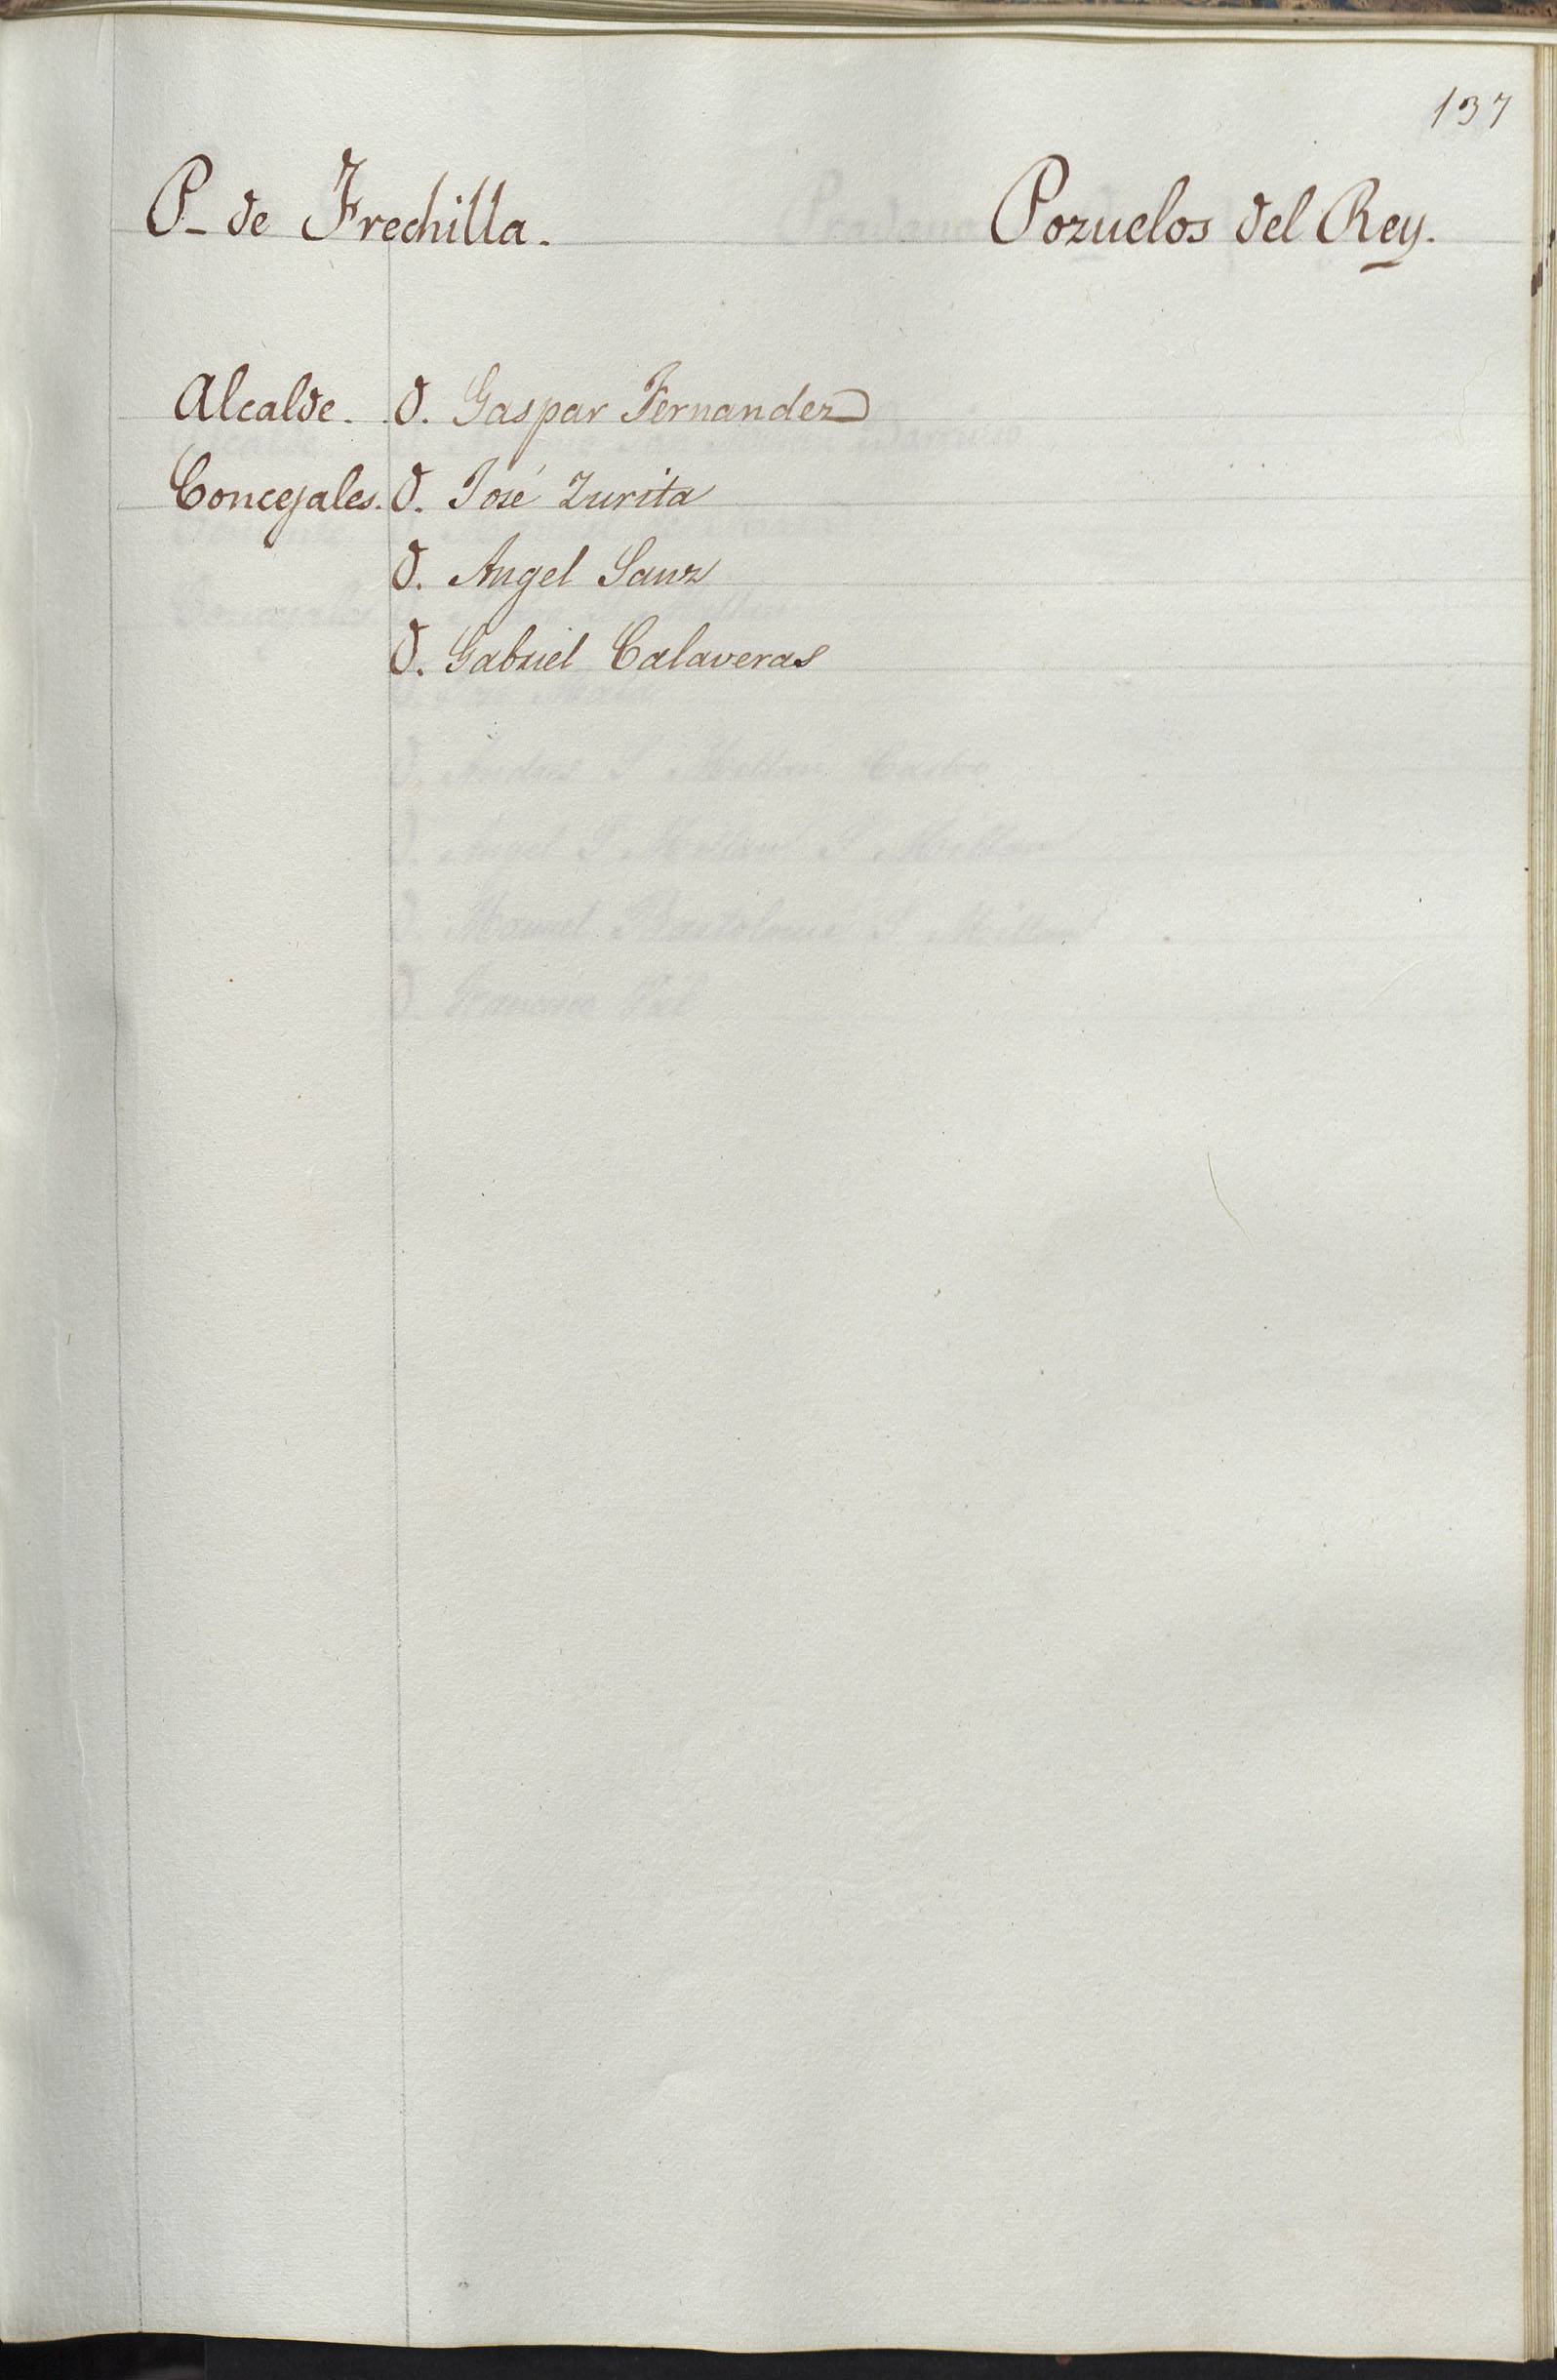 137
P. de Frechilla. Pozuelos del Rey.
Alcalde. D. Gaspar Fernandez
Concejales. D. José Zurita
D. Angel Sanz
D. Gabriel Calaveras